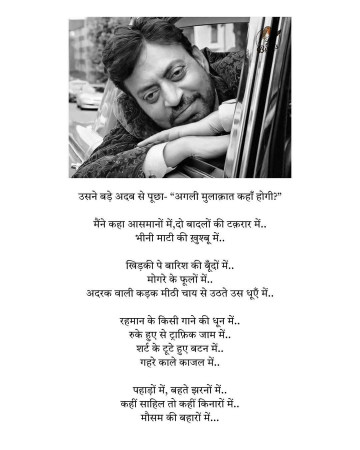 उसने बड़े अदब से पूछा- “अगली मुलाक़ात कहाँ होगी?”
मैंने कहा आसमानों में,दो बादलों की टक़रार में..
भीनी माटी की ख़ुश्बू में..
खिड़की पे बारिश की बूँदों में..
मोगरे के फूलों में..
अदरक वाली कड़क मीठी चाय से उठते उस धूएँ में..
रहमान के किसी गाने की धून में..
रुके हुए से ट्राफ़िक जाम में..
शर्ट के टूटे हुए बटन में..
गहरे काले काजल में..
पहाड़ों में, बहते झरनों में..
कहीं साहिल तो कहीं किनारों में..
मौसम की बहारों में...